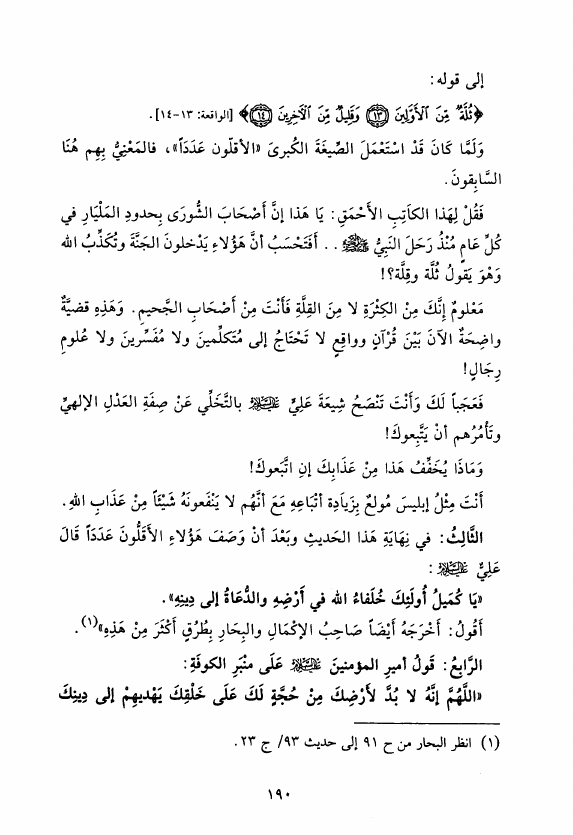 إلى قوله:
﴿ثُلَّةٌ مِّنَ ٱلْأَوَّلِينَ ﴿١٣﴾ وَقَلِيلٌ مِّنَ ٱلْآخِرِينَ ﴿١٤﴾﴾ [الواقعة: ١٣-١٤].
وَلَمَّا كَانَ قَدْ اسْتَعْمَلَ الصِّيغَةَ الكُبرىَ «الأقلّون عَدَدَاً»، فالمَعْنِيُّ بِهِم هُنَا
السَّابِقونَ.
فَقُلْ لِهَذا الكاَتِبِ الأَحْمَقِ: يَا هَذا إنَّ أَصْحَابَ الشُّورَى بِحدودِ المَلْيَارِ في
كُلِّ عَامٍ مُنْذُ رَحَلَ النَبِيُّ ﷺ . . أَفَتَحْسَبُ أنَّ هَؤُلاءِ يَدْخلونَ الجَنَّةَ وتُكَذِّبُ الله
وَهوَ يَقولُ ثُلَّة وقِلَّة؟!
مَعْلومٌ إنَّكَ مِنَ الكِثْرَةِ لا مِنَ القِلَّةِ فَأَنْتَ مِنْ أَصْحَابِ الجَّحيمِ. وَهَذِهِ قضيَّةٌ
واضِحَةٌ الآنَ بَيْنَ قُرْآنٍ وواقعٍ لا تَحْتَاجُ إلى مُتَكلِّمينَ ولا مُفَسِّرينَ ولا عُلومِ
رِجَالٍ!
فَعَجَباً لَكَ وَأَنْتَ تَنْصَحُ شِيعَةَ عَلِيٍّ عَلَيْهِ السَّلَام بالتَّخَلِّي عَنْ صِفَةِ العَدْلِ الإلهيِّ
وتَأْمُرُهم أنْ يَتَّبِعوكَ!
وَمَاذَا يُخَفِّفُ هَذا مِنْ عَذَابِكَ إنِ اتَّبَعوكَ!
أَنْتَ مِثْلُ إبليسَ مُولعٌ بِزيَادِةِ أتْبَاعِهِ مَعَ أنَّهُم لا يَنْفَعونَهُ شَيْئَاً مِنْ عَذَابِ اللهِ.
الثَّالِثُ: في نِهَايَةِ هَذا الحَديثِ وبَعْدَ أنْ وَصَفَ هَؤُلاءِ الأَقَلُّونَ عَدَدَاً قَالَ
عَلِيٌّ عَلَيْهِ السَّلَام :
«يَا كُمَيلُ أُولَئِكَ خُلَفاءُ الله في أَرْضِهِ والدُّعَاةُ إلى دِينِهِ».
أَقُولُ: أَخْرَجَهُ أَيْضَاً صَاحِبُ الإكْمَالِ والبِحَارِ بِطُرُقٍ أَكثَرَ مِنْ هَذِهِ»(١).
الرَّابعُ: قَولُ أَميرِ المؤمنينَ عَلَيْهِ السَّلَام عَلَى مَنْبَرِ الكوفَةِ:
«اللَّهُمَّ إنَّهُ لا بُدَّ لأَرْضِكَ مِنْ حُجَّةٍ لَكَ عَلَى خَلْقِكَ يَهْديهِمْ إلى دِينِكَ
(١) انظر البحار من ح ٩١ إلى حديث ٩٣/ ج ٢٣.
١٩٠